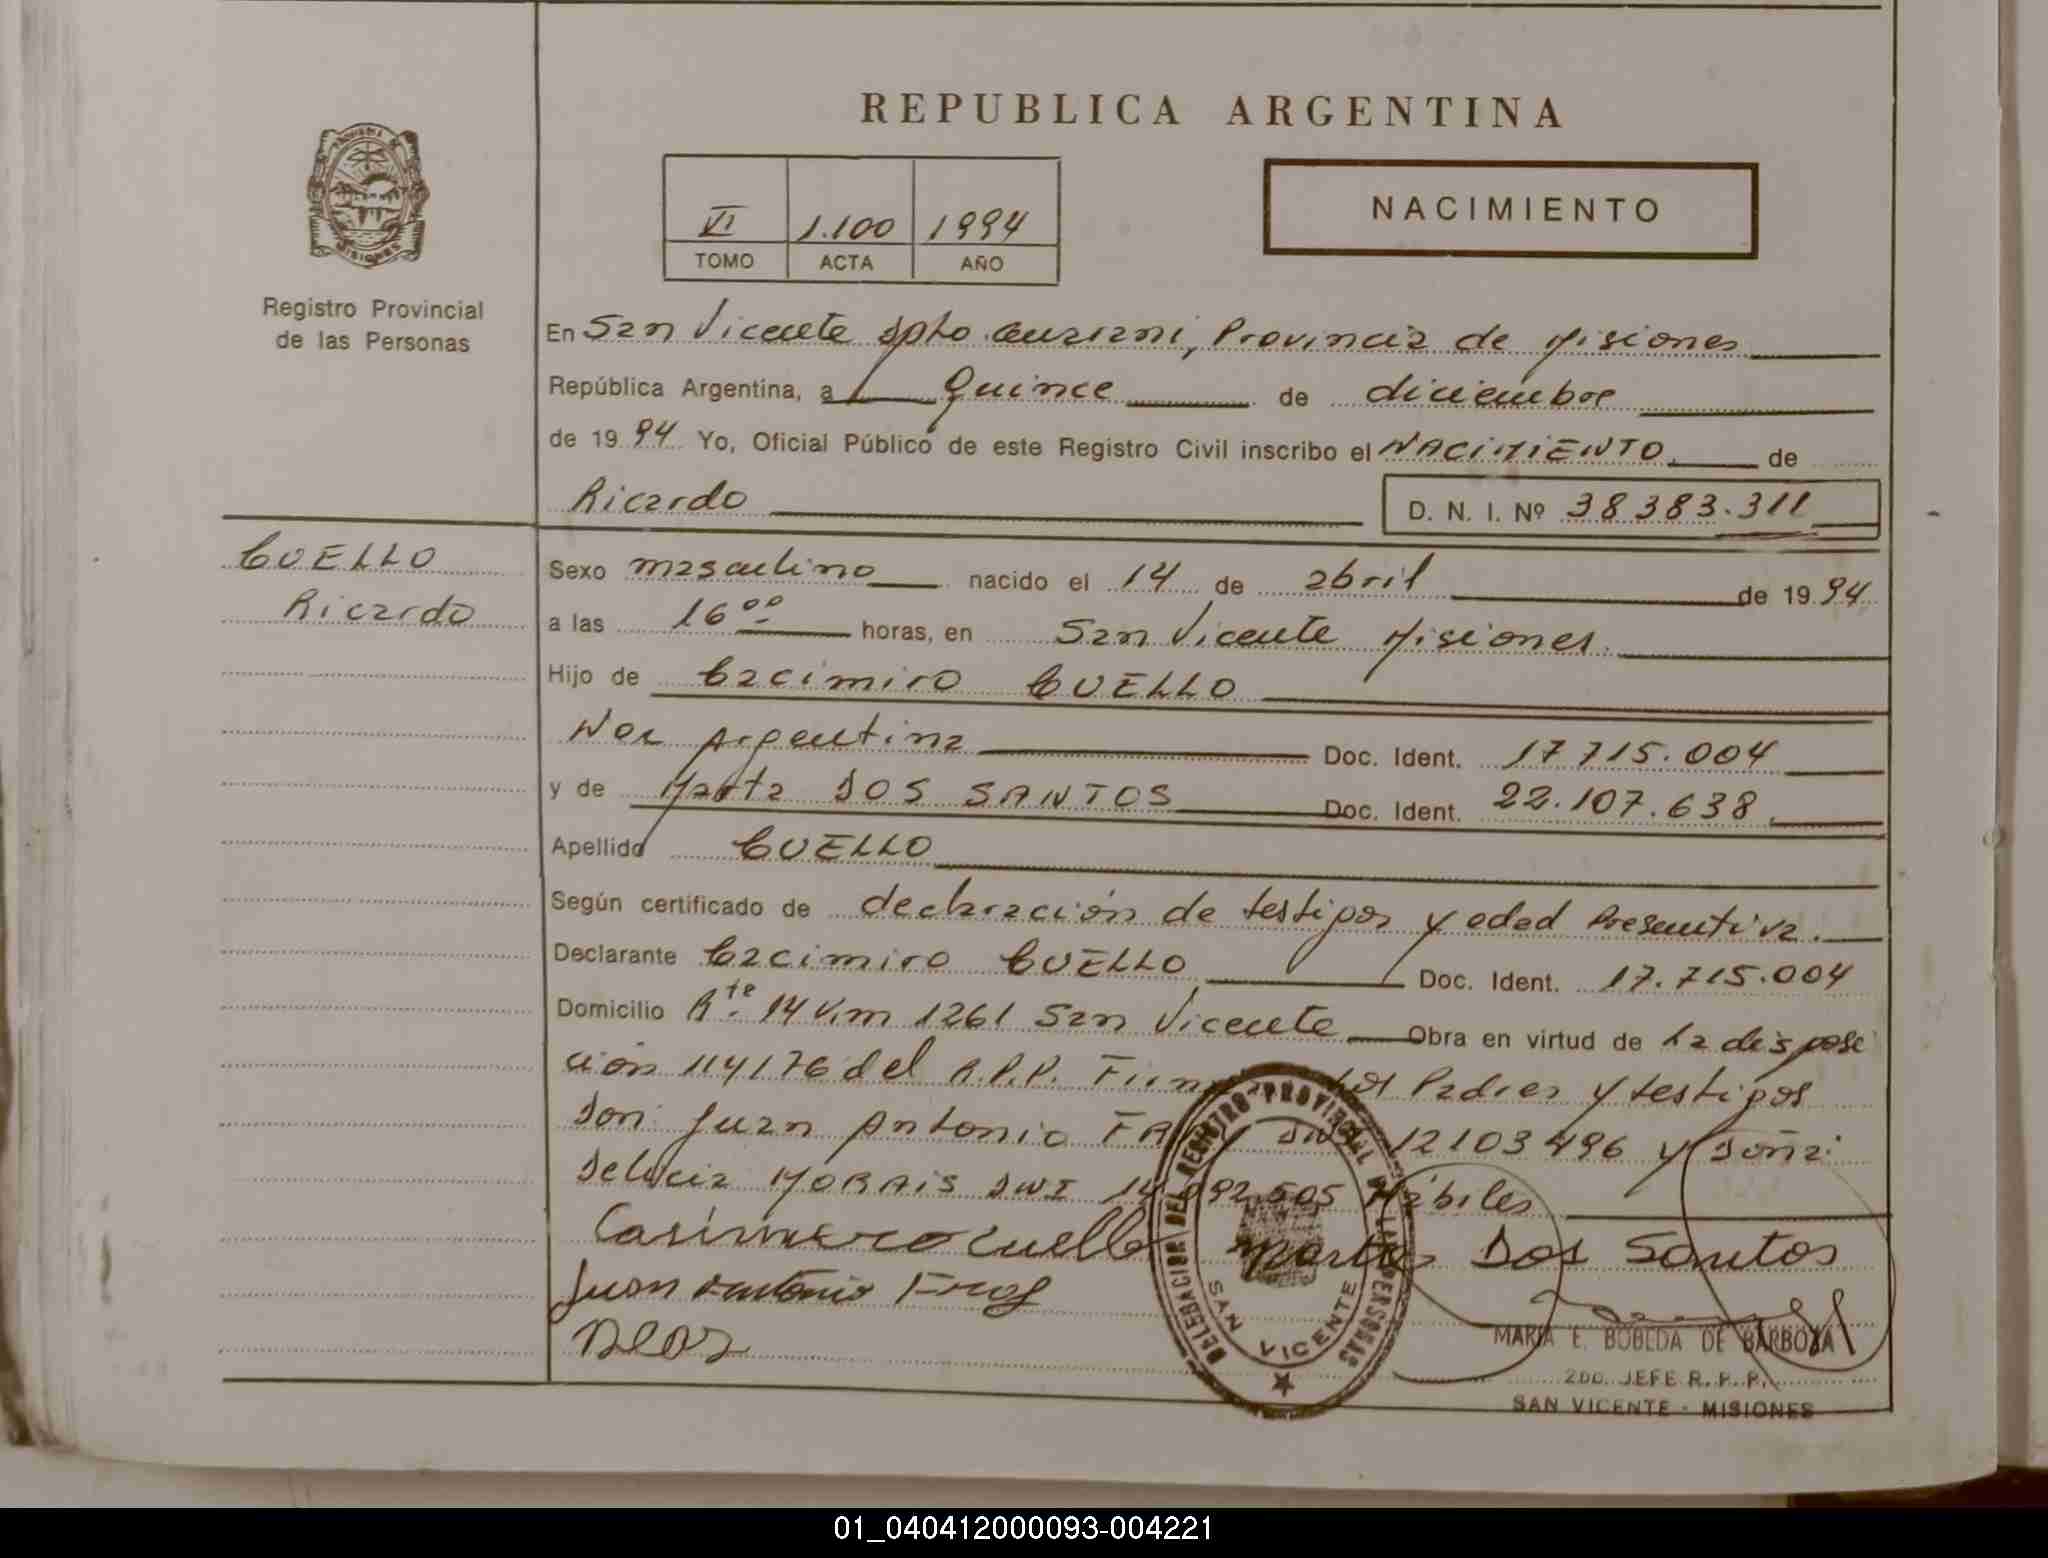 REPUBLICA ARGENTINA
PROVINCIA DE
MISIONES
Registro Provincial
de las Personas
VI 1.100 1994
TOMO ACTA AÑO
NACIMIENTO
En San Vicente Dpto Guarani, Provincia de Misiones
República Argentina, a Quince de diciembre
de 1994 Yo, Oficial Público de este Registro Civil inscribo el NACIMIENTO de
Ricardo D. N. I. Nº 38 383.311
CUELLO
Ricardo
Sexo masculino nacido el 14 de abril de 1994
a las 16 00 horas, en San Vicente Misiones.
Hijo de Cacimiro CUELLO
Nac Argentina Doc. Ident. 17 715.004
y de Marta DOS SANTOS Doc. Ident. 22.107.638
Apellido CUELLO
Según certificado de declaración de testigos y edad Presuntiva.
Declarante Cacimiro CUELLO Doc. Ident. 17.715.004
Domicilio Rta. 14 Km 1261 San Vicente Obra en virtud de La disposi
ción 114/76 del R.P.P. Padres y testigos
Don: Juan Antonio 12103496 y Doña:
MORAIS DNI Hábiles
Casimiro Cuello Marta Dos Santos
Juan Antonio
DELEGACION DEL REGISTRO PROVINCIAL DE LAS PERSONAS
SAN VICENTE
MARIA E. BOBEDA DE BARBOZA
2DO. JEFE R. P. P.
SAN VICENTE - MISIONES
01_040412000093-004221